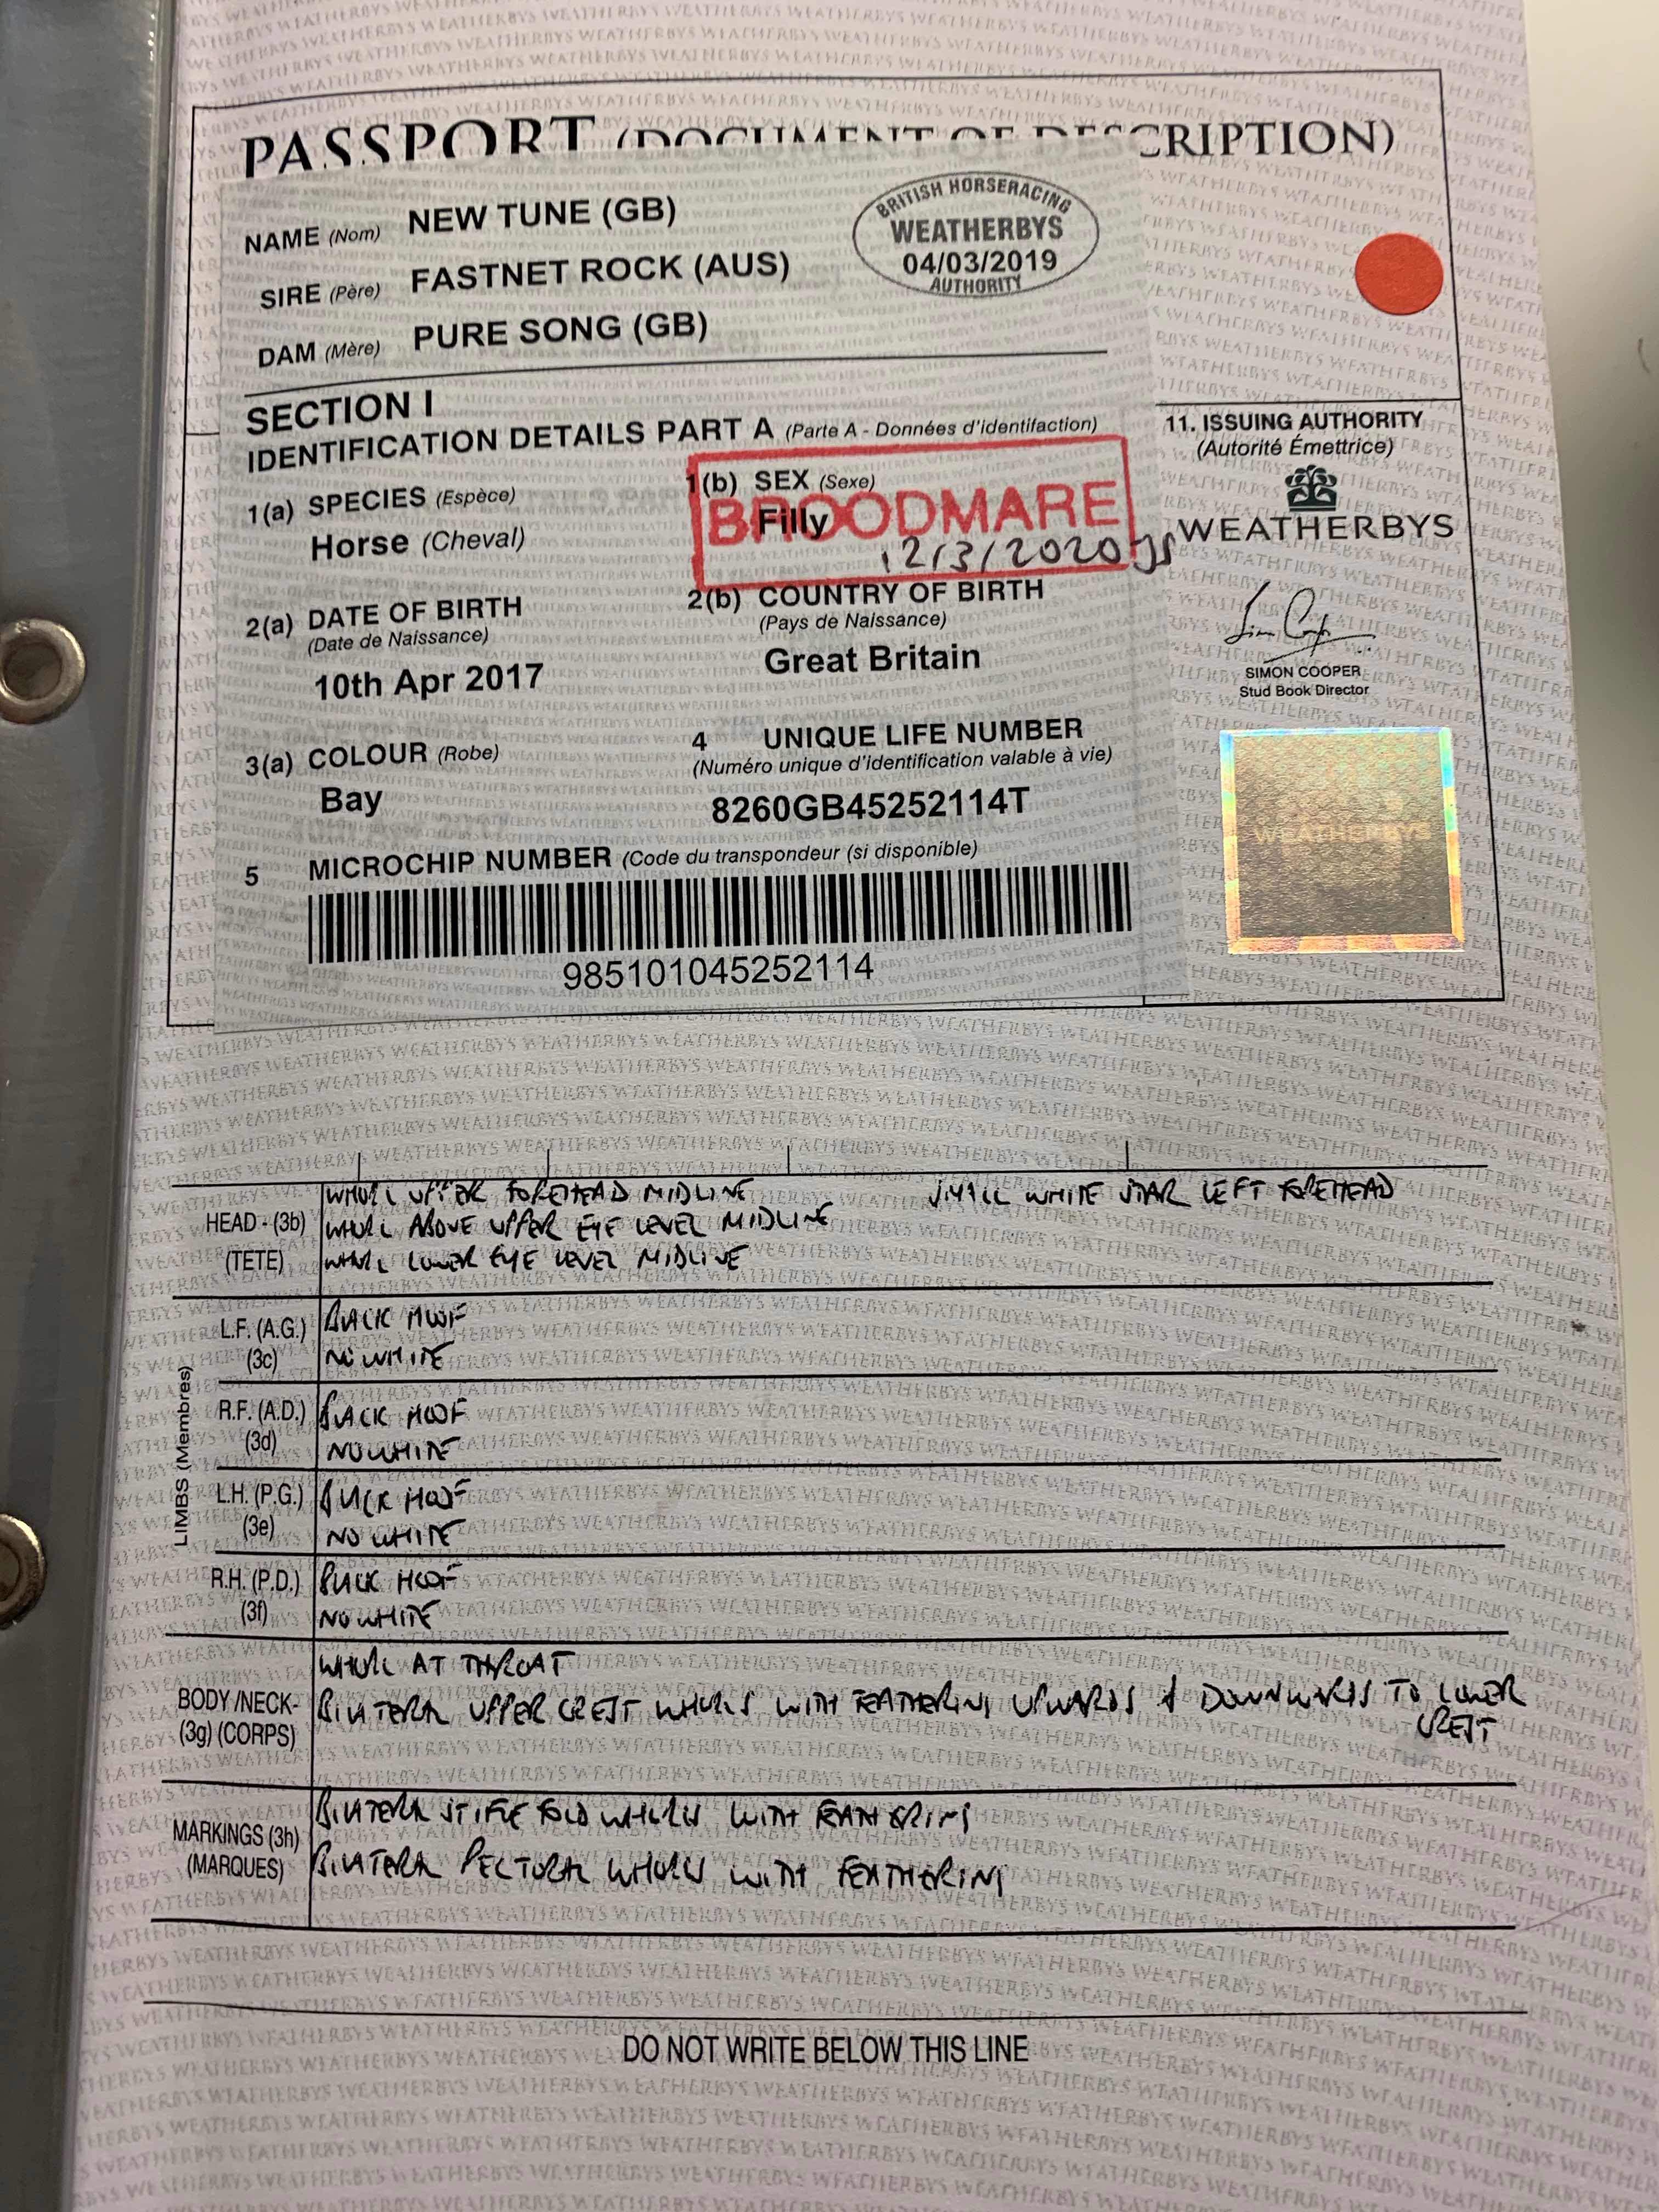 PASSPORT (DOCUMENT OF DESCRIPTION)
NAME (Nom) NEW TUNE (GB)
SIRE (Père) FASTNET ROCK (AUS)
DAM (Mère) PURE SONG (GB)
BRITISH HORSERACING
WEATHERBYS
04/03/2019
AUTHORITY
SECTION I
IDENTIFICATION DETAILS PART A (Parte A - Données d'identifaction)
1(a) SPECIES (Espèce)
Horse (Cheval)
1(b) SEX (Sexe)
Filly
BROODMARE
12/3/2020 JS
2(a) DATE OF BIRTH
(Date de Naissance)
10th Apr 2017
2(b) COUNTRY OF BIRTH
(Pays de Naissance)
Great Britain
3(a) COLOUR (Robe)
Bay
4 UNIQUE LIFE NUMBER
(Numéro unique d'identification valable à vie)
8260GB45252114T
5 MICROCHIP NUMBER (Code du transpondeur (si disponible)
985101045252114
11. ISSUING AUTHORITY
(Autorité Émettrice)
WEATHERBYS
SIMON COOPER
Stud Book Director
WEATHERBYS
HEAD - (3b)
(TETE)
WHORL UPPER FOREHEAD MIDLINE SMALL WHITE STAR LEFT FOREHEAD
WHORL ABOVE UPPER EYE LEVEL MIDLINE
WHORL LOWER EYE LEVEL MIDLINE
LIMBS (Membres)
L.F. (A.G.)
(3c)
BLACK HOOF
NO WHITE
R.F. (A.D.)
(3d)
BLACK HOOF
NO WHITE
L.H. (P.G.)
(3e)
BLACK HOOF
NO WHITE
R.H. (P.D.)
(3f)
BLACK HOOF
NO WHITE
BODY/NECK-
(3g) (CORPS)
WHORL AT THROAT
BILATERAL UPPER CREST WHORLS WITH FEATHERING UPWARDS & DOWNWARDS TO LOWER
CREST
MARKINGS (3h)
(MARQUES)
BILATERAL STIFLE FOLD WHORLS WITH FEATHERING
BILATERAL PECTORAL WHORLS WITH FEATHERING
DO NOT WRITE BELOW THIS LINE